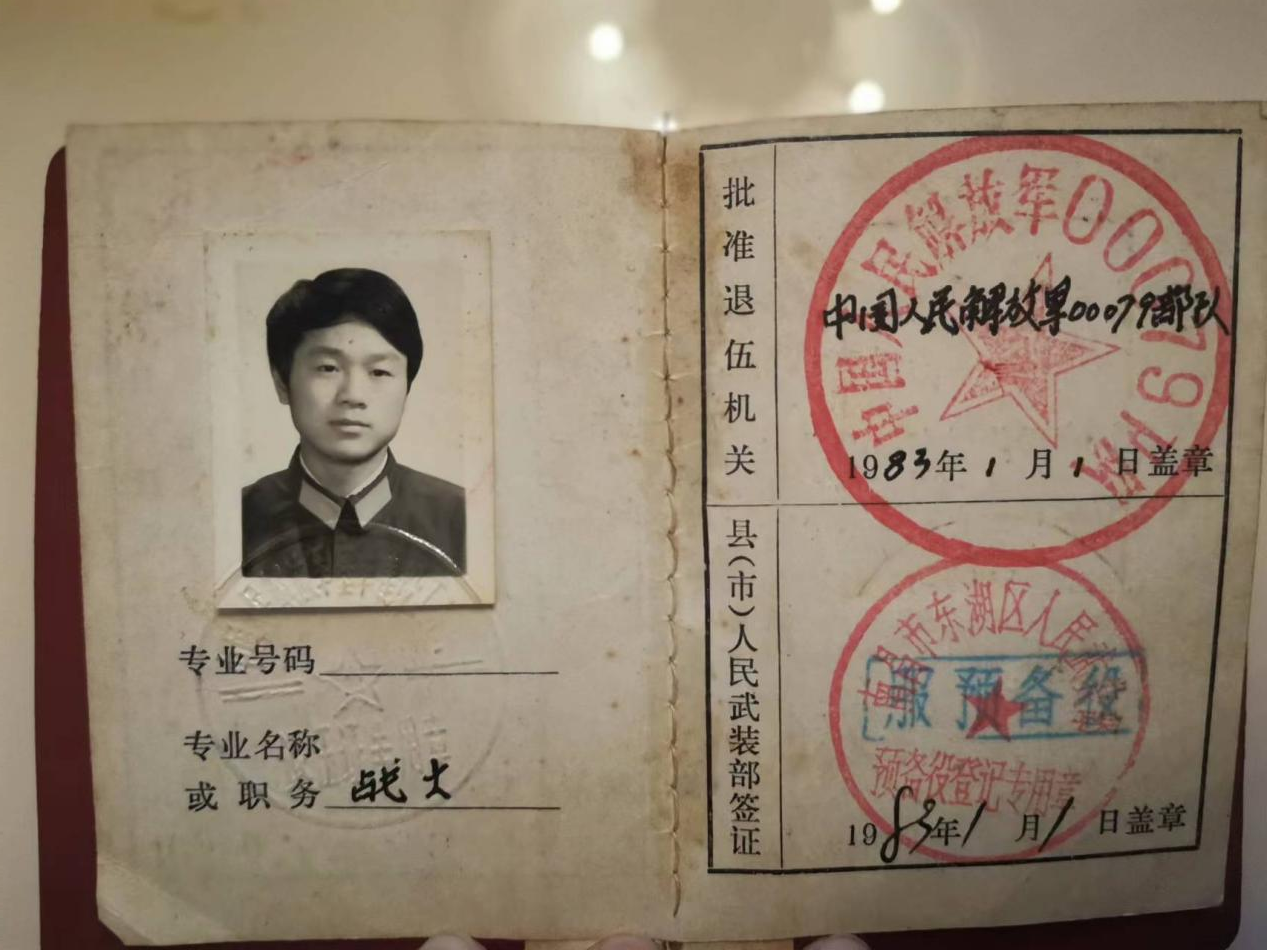 专业号码
专业名称
或职务 战士
批准退伍机关
中国人民解放军00079部队
中国人民解放军00079部队
1983年1月1日盖章
县(市)人民武装部签证
南昌市东湖区人民武装部
服预备役
预备役登记专用章
1983年1月1日盖章